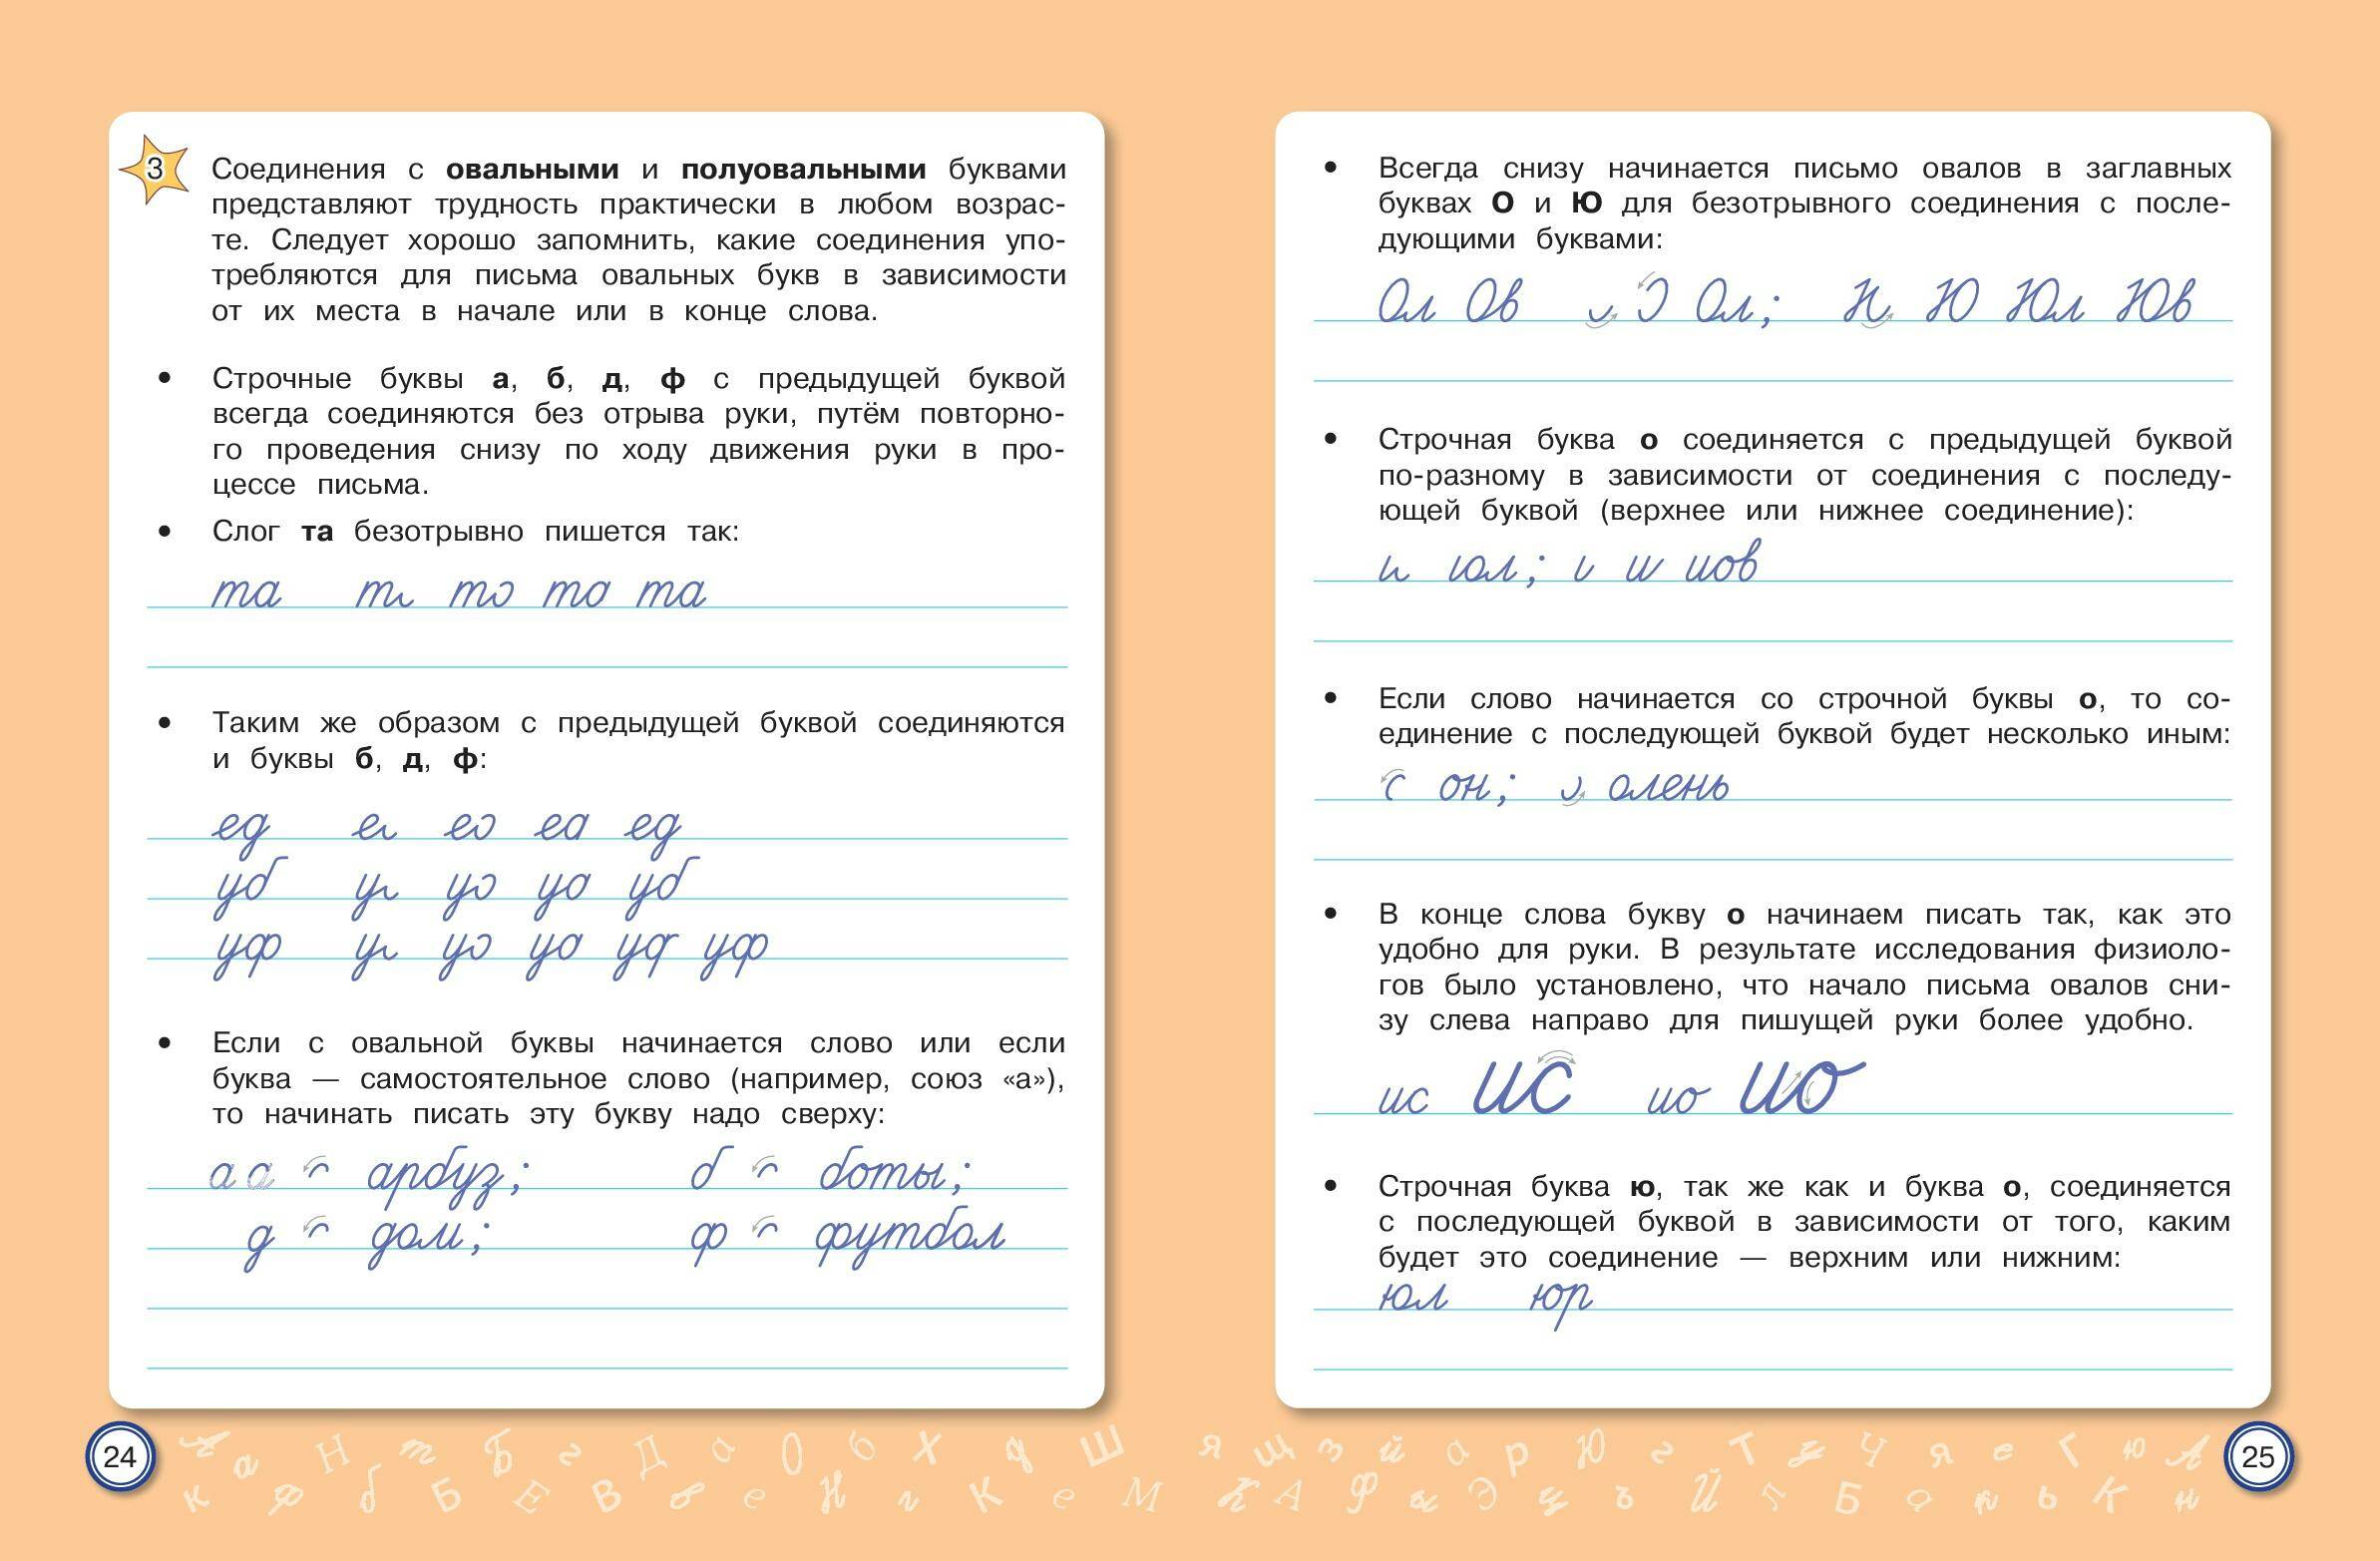 3
Соединения с овальными и полуовальными буквами
представляют трудность практически в любом возрас-
те. Следует хорошо запомнить, какие соединения упо-
требляются для письма овальных букв в зависимости
от их места в начале или в конце слова.
• Строчные буквы а, б, д, ф с предыдущей буквой
всегда соединяются без отрыва руки, путём повторно-
го проведения снизу по ходу движения руки в про-
цессе письма.
• Слог та безотрывно пишется так:
та та та
• Таким же образом с предыдущей буквой соединяются
и буквы б, д, ф:
ед е еа ед
уб у уб
уф у уф
• Если с овальной буквы начинается слово или если
буква — самостоятельное слово (например, союз «а»),
то начинать писать эту букву надо сверху:
а а арбуз; б боты;
д дом; ф футбол
24
• Всегда снизу начинается письмо овалов в заглавных
буквах О и Ю для безотрывного соединения с после-
дующими буквами:
Ол Ов Ол; Ю Юл Юв
• Строчная буква о соединяется с предыдущей буквой
по-разному в зависимости от соединения с последу-
ющей буквой (верхнее или нижнее соединение):
иол; иов
• Если слово начинается со строчной буквы о, то со-
единение с последующей буквой будет несколько иным:
он; олень
• В конце слова букву о начинаем писать так, как это
удобно для руки. В результате исследования физиоло-
гов было установлено, что начало письма овалов сни-
зу слева направо для пишущей руки более удобно.
ис ис ио ио
• Строчная буква ю, так же как и буква о, соединяется
с последующей буквой в зависимости от того, каким
будет это соединение — верхним или нижним:
юл юр
25